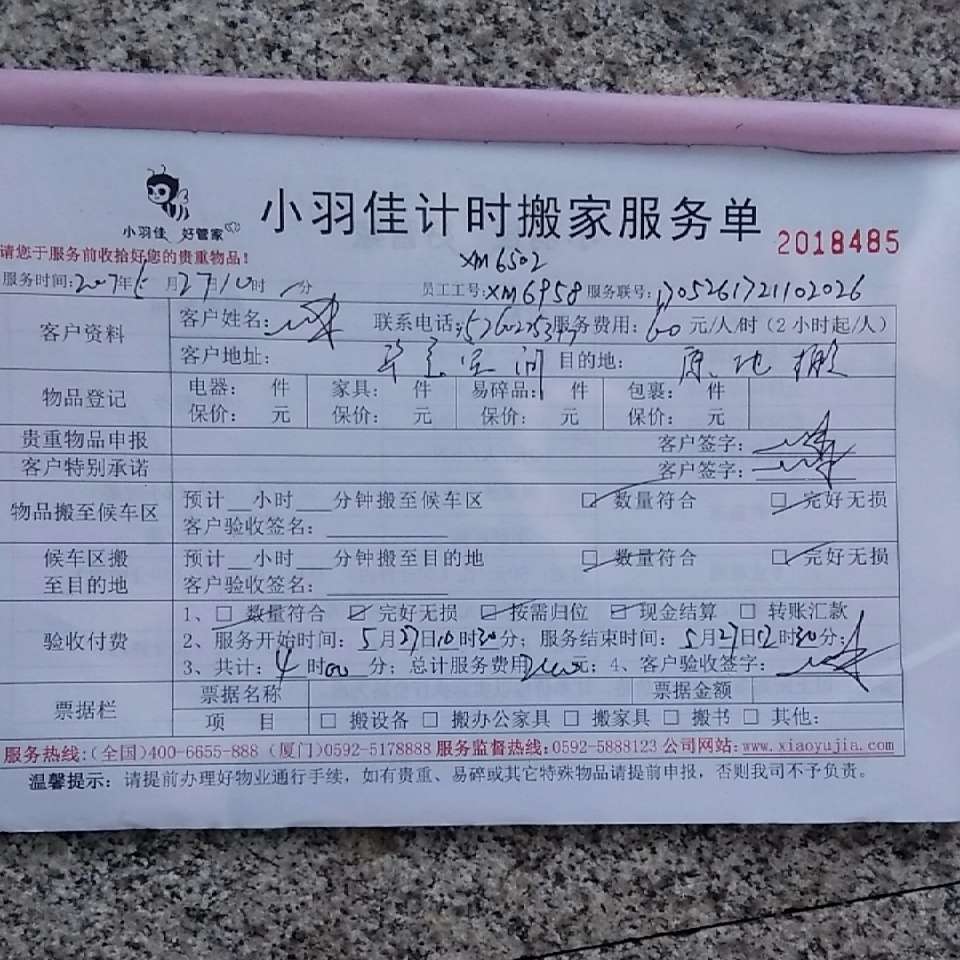 小羽佳 好管家
小羽佳计时搬家服务单
2018485
请您于服务前收拾好您的贵重物品！
XM6502
服务时间：2017年5月27日10时 分 员工工号：XM6958 服务联号：1705261721102026
客户资料 客户姓名： 联系电话： 服务费用：60元/人/时（2小时起/人）
客户地址： 空间 目的地：原地搬
物品登记 电器： 件 家具： 件 易碎品： 件 包裹： 件
保价： 元 保价： 元 保价： 元 保价： 元
贵重物品申报 客户签字：
客户特别承诺 客户签字：
物品搬至候车区 预计__小时___分钟搬至候车区 ☑ 数量符合 ☑ 完好无损
客户验收签名：
候车区搬至目的地 预计__小时___分钟搬至目的地 ☑ 数量符合 ☑ 完好无损
客户验收签名：
验收付费 1、☑ 数量符合 ☑ 完好无损 ☑ 按需归位 ☑ 现金结算 □ 转账汇款
2、服务开始时间：5月27日10时30分；服务结束时间：5月27日 时30分；
3、共计：4时00分；总计服务费用 元；4、客户验收签字：
票据栏 票据名称 票据金额
项 目 □ 搬设备 □ 搬办公家具 □ 搬家具 □ 搬书 □ 其他：
服务热线：(全国)400-6655-888 (厦门)0592-5178888 服务监督热线：0592-5888123 公司网站：www.xiaoyujia.com
温馨提示：请提前办理好物业通行手续，如有贵重、易碎或其它特殊物品请提前申报，否则我司不予负责。